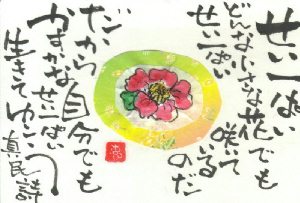 せい一ぱい
どんな小さな花でも
せい一ぱい
咲いて
いる
のだ
だから自分でも
せい一ぱい
生きてゆこう
真民詩